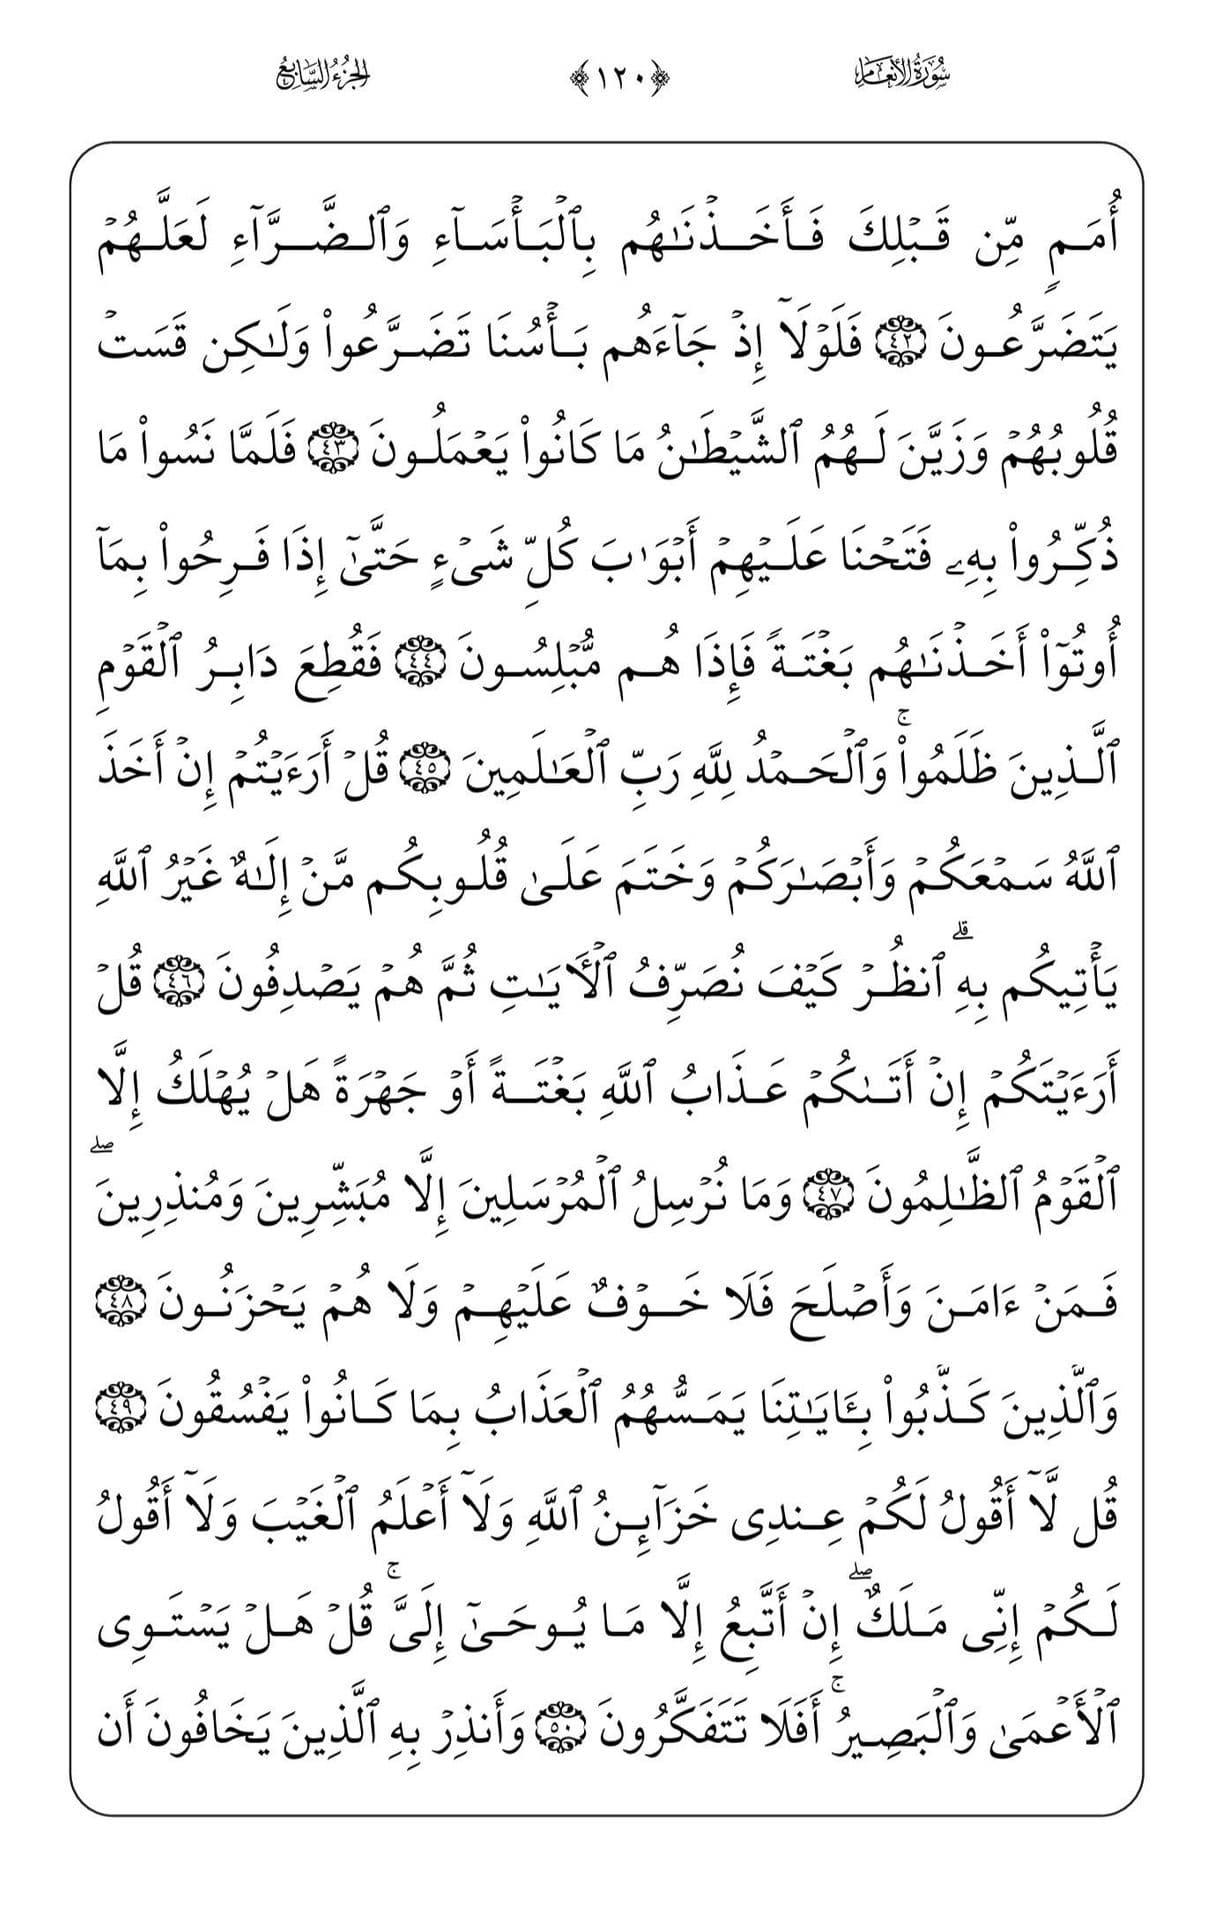 سُورَةُ الأَنْعَامِ ﴿١٢٠﴾ الجُزْءُ السَّابِعُ
أُمَمٍ مِّن قَبْلِكَ فَأَخَذْنَٰهُم بِٱلْبَأْسَآءِ وَٱلضَّرَّآءِ لَعَلَّهُمْ
يَتَضَرَّعُونَ ٤٢ فَلَوْلَآ إِذْ جَآءَهُم بَأْسُنَا تَضَرَّعُوا۟ وَلَٰكِن قَسَتْ
قُلُوبُهُمْ وَزَيَّنَ لَهُمُ ٱلشَّيْطَٰنُ مَا كَانُوا۟ يَعْمَلُونَ ٤٣ فَلَمَّا نَسُوا۟ مَا
ذُكِّرُوا۟ بِهِۦ فَتَحْنَا عَلَيْهِمْ أَبْوَٰبَ كُلِّ شَىْءٍ حَتَّىٰٓ إِذَا فَرِحُوا۟ بِمَآ
أُوتُوٓا۟ أَخَذْنَٰهُم بَغْتَةً فَإِذَا هُم مُّبْلِسُونَ ٤٤ فَقُطِعَ دَابِرُ ٱلْقَوْمِ
ٱلَّذِينَ ظَلَمُوا۟ۚ وَٱلْحَمْدُ لِلَّهِ رَبِّ ٱلْعَٰلَمِينَ ٤٥ قُلْ أَرَءَيْتُمْ إِنْ أَخَذَ
ٱللَّهُ سَمْعَكُمْ وَأَبْصَٰرَكُمْ وَخَتَمَ عَلَىٰ قُلُوبِكُم مَّنْ إِلَٰهٌ غَيْرُ ٱللَّهِ
يَأْتِيكُم بِهِۗ ٱنظُرْ كَيْفَ نُصَرِّفُ ٱلْـَٔايَٰتِ ثُمَّ هُمْ يَصْدِفُونَ ٤٦ قُلْ
أَرَءَيْتَكُمْ إِنْ أَتَىٰكُمْ عَذَابُ ٱللَّهِ بَغْتَةً أَوْ جَهْرَةً هَلْ يُهْلَكُ إِلَّا
ٱلْقَوْمُ ٱلظَّٰلِمُونَ ٤٧ وَمَا نُرْسِلُ ٱلْمُرْسَلِينَ إِلَّا مُبَشِّرِينَ وَمُنذِرِينَۖ
فَمَنْ ءَامَنَ وَأَصْلَحَ فَلَا خَوْفٌ عَلَيْهِمْ وَلَا هُمْ يَحْزَنُونَ ٤٨
وَٱلَّذِينَ كَذَّبُوا۟ بِـَٔايَٰتِنَا يَمَسُّهُمُ ٱلْعَذَابُ بِمَا كَانُوا۟ يَفْسُقُونَ ٤٩
قُل لَّآ أَقُولُ لَكُمْ عِندِى خَزَآئِنُ ٱللَّهِ وَلَآ أَعْلَمُ ٱلْغَيْبَ وَلَآ أَقُولُ
لَكُمْ إِنِّى مَلَكٌۖ إِنْ أَتَّبِعُ إِلَّا مَا يُوحَىٰٓ إِلَىَّۚ قُلْ هَلْ يَسْتَوِى
ٱلْأَعْمَىٰ وَٱلْبَصِيرُۚ أَفَلَا تَتَفَكَّرُونَ ٥٠ وَأَنذِرْ بِهِ ٱلَّذِينَ يَخَافُونَ أَن